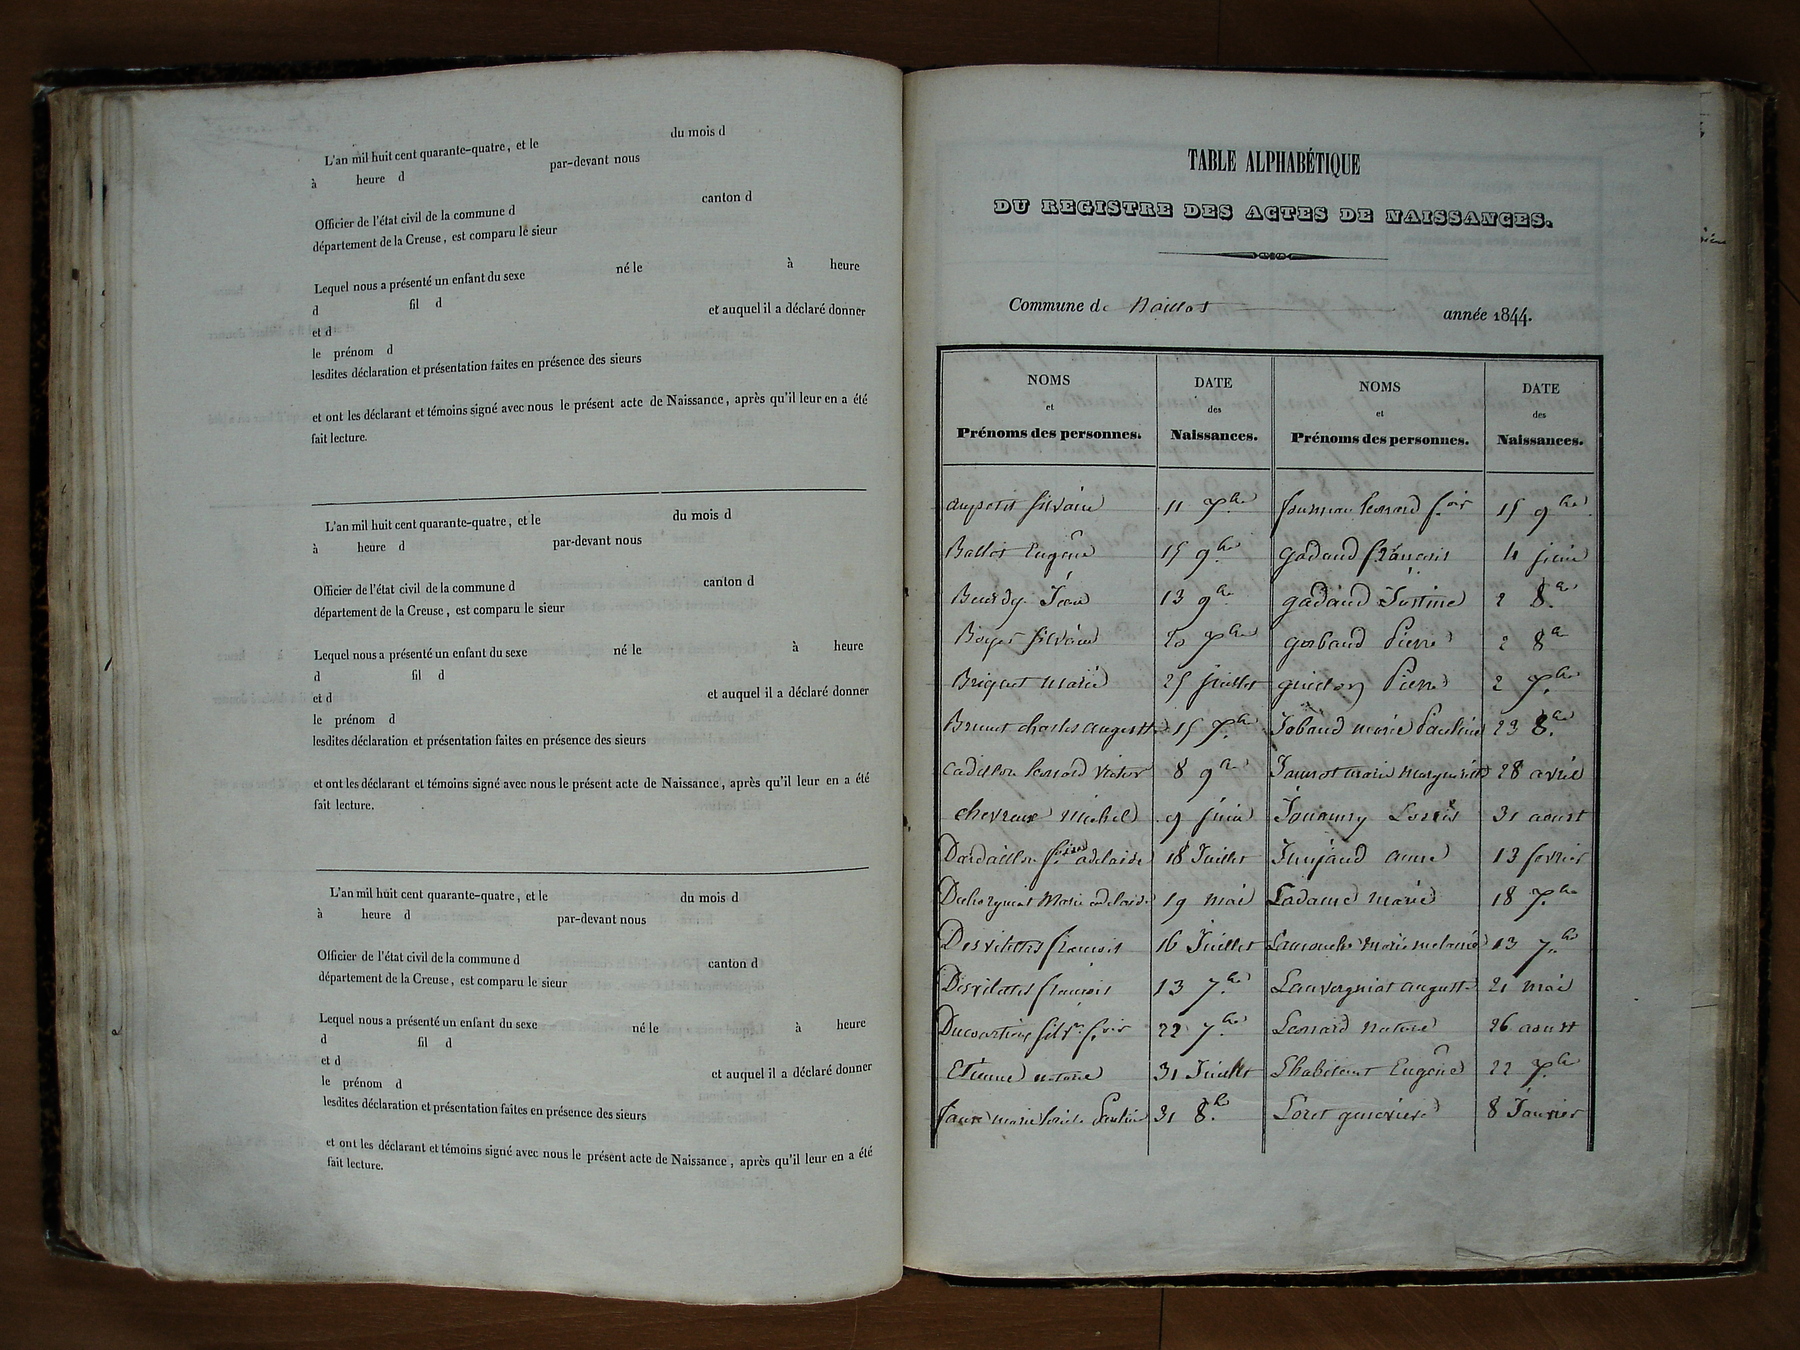 L'an mil huit cent quarante-quatre, et le du mois d
à heure d par-devant nous
Officier de l'état civil de la commune d canton d
département de la Creuse, est comparu le sieur
Lequel nous a présenté un enfant du sexe né le à heure
d fil d
et d et auquel il a déclaré donner
le prénom d
lesdites déclaration et présentation faites en présence des sieurs
et ont les déclarant et témoins signé avec nous le présent acte de Naissance, après qu'il leur en a été
fait lecture.
L'an mil huit cent quarante-quatre, et le du mois d
à heure d par-devant nous
Officier de l'état civil de la commune d canton d
département de la Creuse, est comparu le sieur
Lequel nous a présenté un enfant du sexe né le à heure
d fil d
et d et auquel il a déclaré donner
le prénom d
lesdites déclaration et présentation faites en présence des sieurs
et ont les déclarant et témoins signé avec nous le présent acte de Naissance, après qu'il leur en a été
fait lecture.
L'an mil huit cent quarante-quatre, et le du mois d
à heure d par-devant nous
Officier de l'état civil de la commune d canton d
département de la Creuse, est comparu le sieur
Lequel nous a présenté un enfant du sexe né le à heure
d fil d
et d et auquel il a déclaré donner
le prénom d
lesdites déclaration et présentation faites en présence des sieurs
et ont les déclarant et témoins signé avec nous le présent acte de Naissance, après qu'il leur en a été
fait lecture.
TABLE ALPHABÉTIQUE
DU REGISTRE DES ACTES DE NAISSANCES.
Commune de Naillat année 1844.
NOMS DATE NOMS DATE
et des et des
Prénoms des personnes. Naissances. Prénoms des personnes. Naissances.
aupetit silvain 11 7bre leonard 15 9bre
Ballot Eugène 15 9bre gadaud françois 4 juin
Jean 13 9bre gadaud Justine 2 8bre
Boyer silvain 20 7bre Pierre 2 8bre
Briquet marie 25 juillet guillon Pierre 2 7bre
Brunet charles auguste 15 7bre Jabaud marie Pauline 23 8bre
leonard victor 8 9bre marie marguerite 28 avril
chevreux michel 9 juin Louis 31 aoust
Dardaillon adelaide 18 Juillet anne 13 fevrier
Marie adelaide 19 mai Ladame marie 18 7bre
Desvilettes françois 16 Juillet Lamouche marie melanie 13 7bre
Desvilettes françois 13 7bre Lauvergniat auguste 21 mai
22 7bre Leonard nature 26 aoust
Etienne nature 31 Juillet Lhabitant Eugène 22 7bre
faure marie Pauline 31 8bre Loret genevieve 8 Janvier